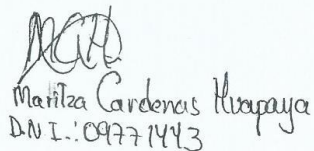 Maritza Cardenas Huapaya
D.N.I.: 09771443